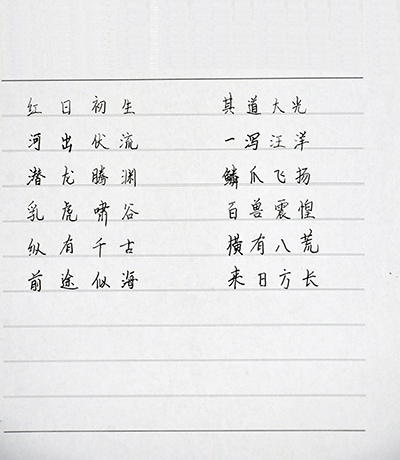 红日初生 其道大光
河出伏流 一泻汪洋
潜龙腾渊 鳞爪飞扬
乳虎啸谷 百兽震惶
纵有千古 横有八荒
前途似海 来日方长